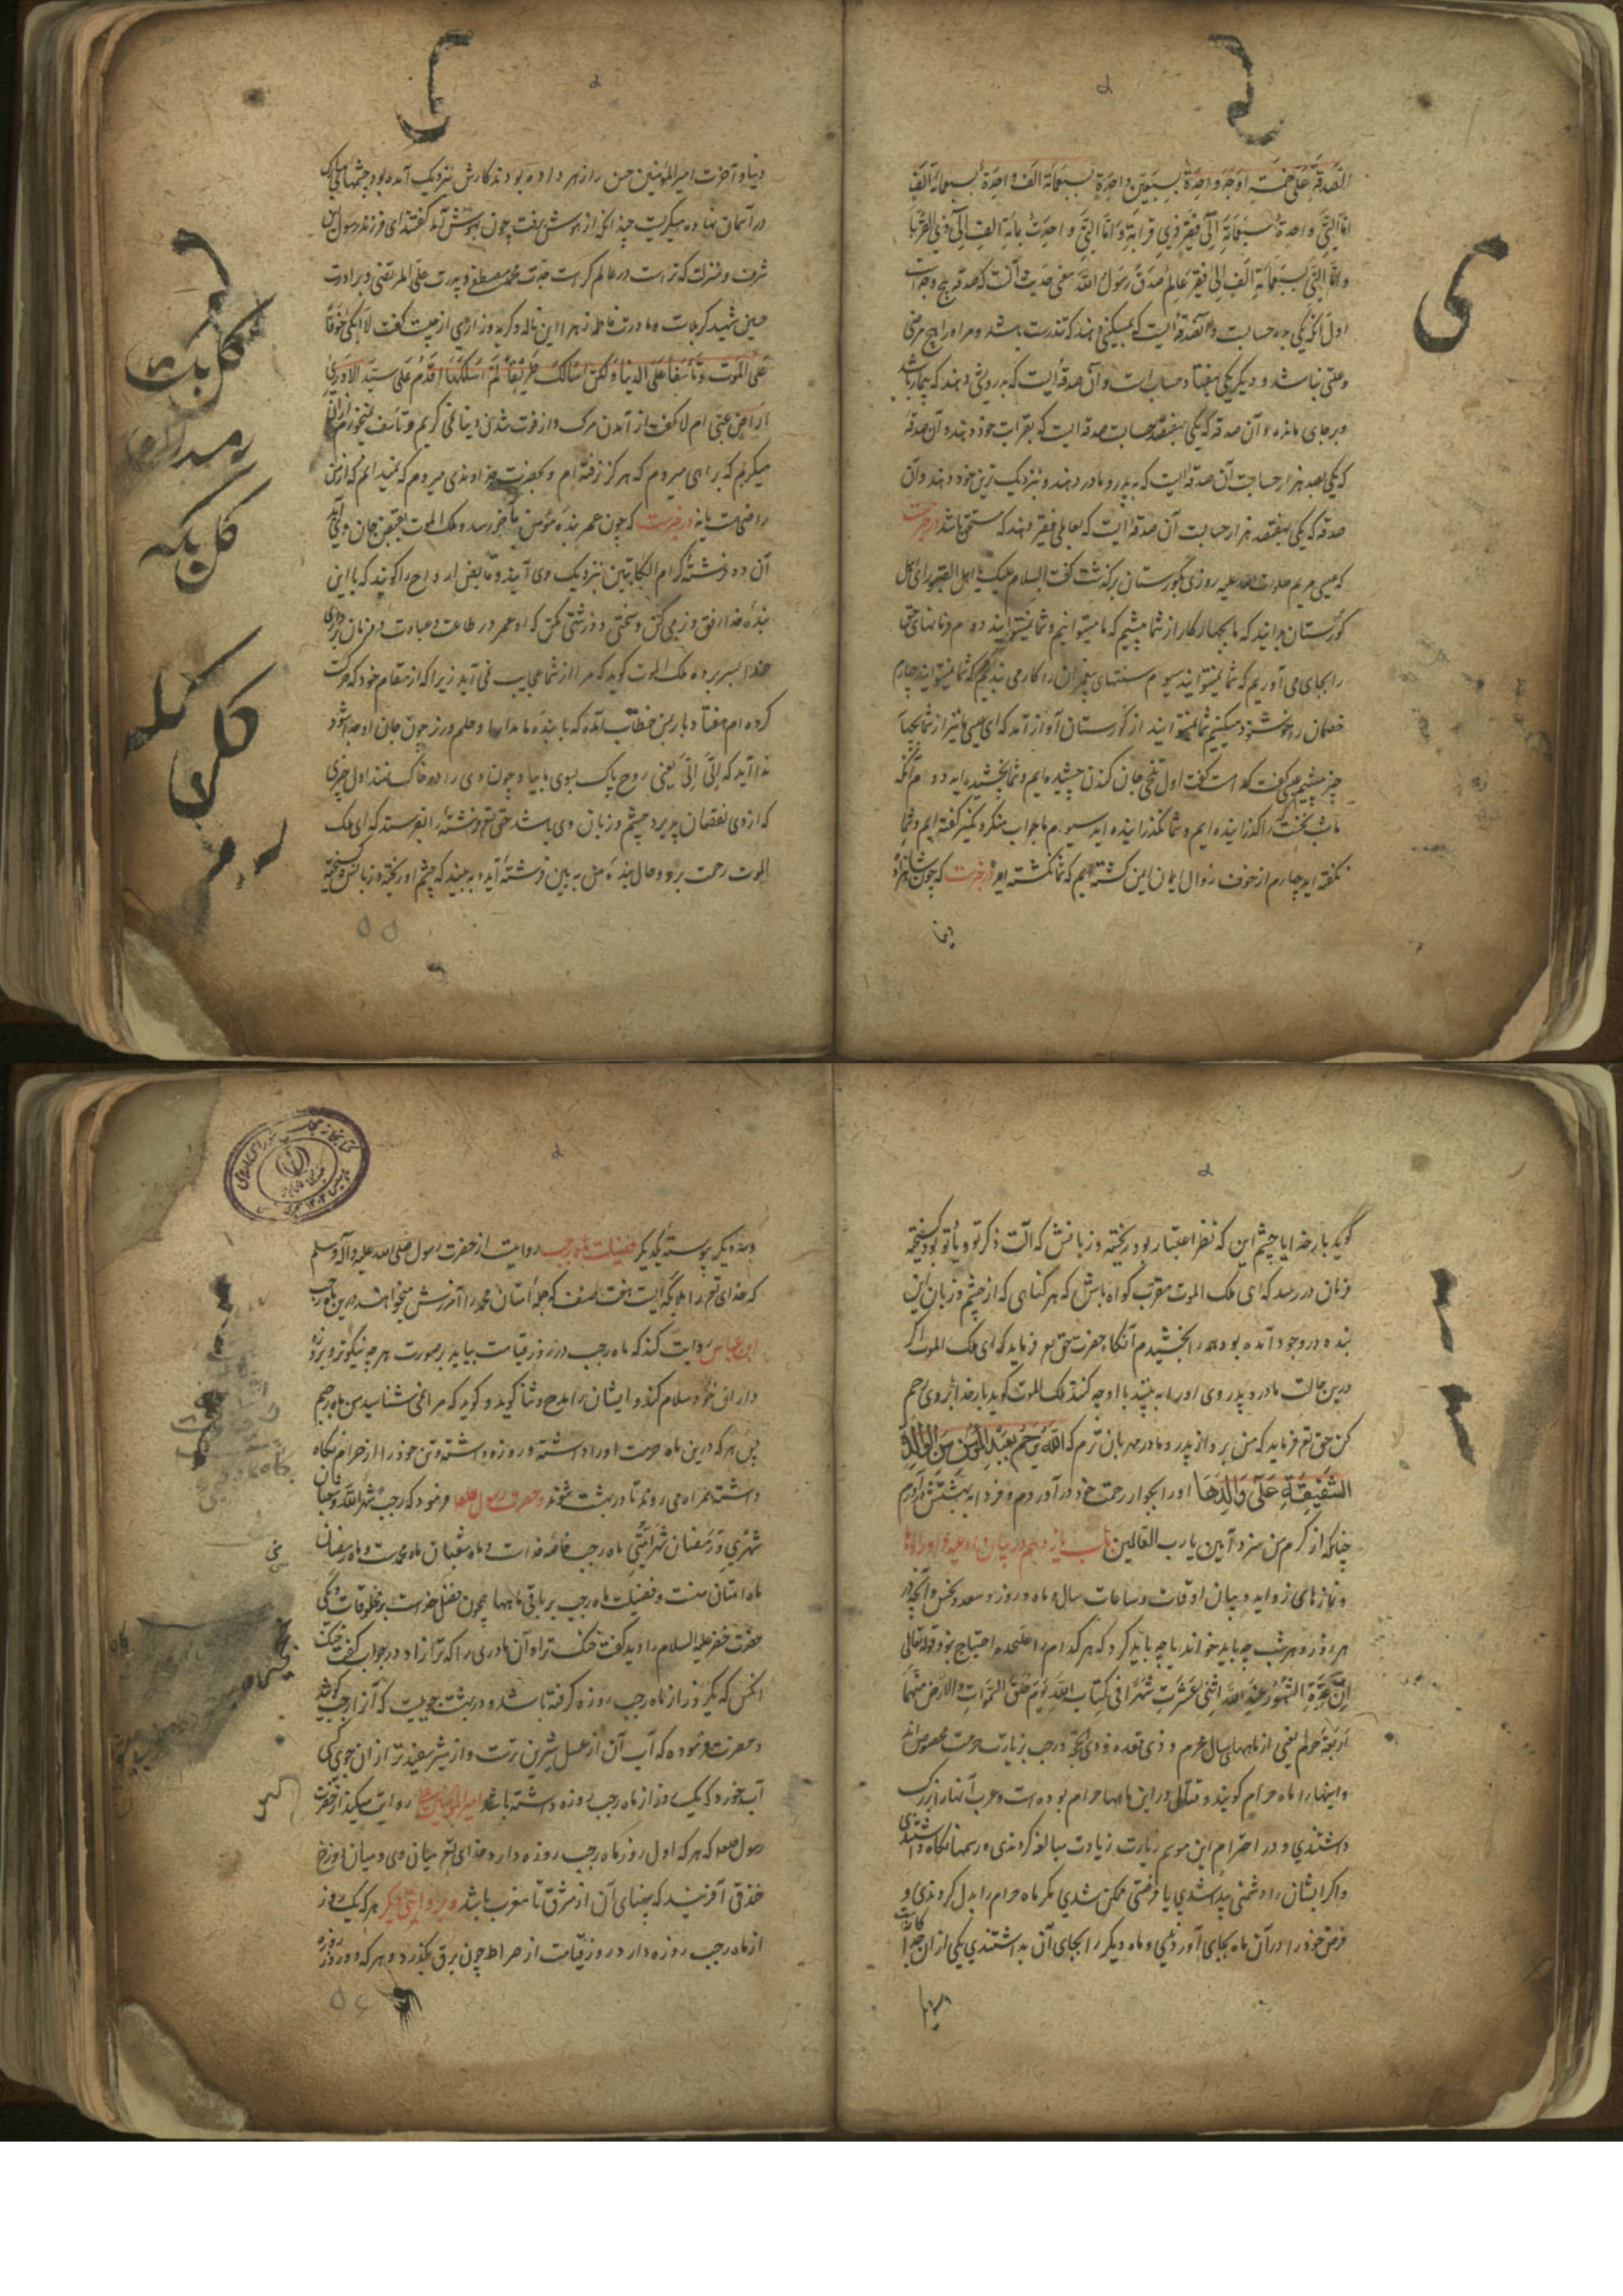 الصدقة علی خمسة اوجه واحدة بسبعین واحدة بسبعمائة الف واحدة بسبعمائة الف
اول آنکه یکی بده حسابست و آن صدقه ایست که بمسکینی دهند که تندرست باشد و مر او را هیچ مرضی
و علتی نباشد و دیگر یکی بهفتاد حساب است و آن صدقه ایست که بدرویش دهند که بیمار باشد
و بر جای مانده و آن صدقه که یکی بهفتصد حسابست صدقه ایست که بقرابت خود دهند و آن صدقه
که یکی بصد هزار حسابست آن صدقه ایست که به پدر و مادر دهند و نزدیک ترین خود دهند و آن
صدقه که یکی بهفتصد هزار حسابست آن صدقه ایست که بعالمی فقیر دهند که مستحق باشد در خبرست
که عیسی مریم صلوات الله علیه روزی بگورستان برگذشت گفت السلام علیک یا اهل القبور ای اهل
گورستان بدانید که ما بچهار کار از شما بیشیم که ما میتوانیم و شما نمیتوانید دوم فرمانهای حق
را بجای می آوریم که شما نمیتوانید سیوم سنتهای پیغمبران را کار می بندیم که شما نمیتوانید چهارم
خصمان را خوشنود میکنیم شما نمیتوانید از گورستان آواز آمد که ای عیسی ما نیز از شما بچهار
چیز بیشیم عیسی گفت کدامست گفت اول تلخی جان کندن چشیده ایم و شما نچشیده اید دوم آنکه
ما شب نخست را گذرانیده ایم و شما نگذرانیده اید سیوم ما جواب منکر و نکیر گفته ایم و شما
نگفته اید چهارم از خوف زوال ایمان ایمن گشته ایم که شما نگشته اید در خبرست که چون شاهزاده
دنیا
دنیا و آخرت امیر المؤمنین حسن را زهر داده بودند کارش نزدیک آمده بود چشمهای مبارک
در آسمان نهاده میگریست چندانکه از هوش برفت چون بهوش آمد گفتند ای فرزند رسول این
شرف و منزلت که تراست در عالم کراست جدت محمد مصطفی و پدرت علی المرتضی و برادرت
حسین شهید کربلاست و مادرت فاطمه زهرا این ناله و گریه و زاری از چیست گفت لا ابکی خوفا
علی الموت و تأسفا علی الدنیا و لکن اسالک طریقا لم اسلکها اقدم علی سید لا ادری
اراض عنی ام لا گفت از آمدن مرگ و از فوت شدن دنیا نمی گریم و تأسف نمیخورم از آن
میگریم که براهی میروم که هرگز نرفته ام و بحضرت خداوندی میروم که نمیدانم که از من
راضی هست یا نه در خبرست که چون عمر بنده مؤمن بآخر رسد و ملک الموت بقبض جان وی آید
آن دو فرشته کرام الکاتبین نزدیک وی آیند و قابض ارواح را گویند که با این
بنده خدا رفق و نرمی کن و سختی و درشتی مکن که او عمر در طاعت و عبادت و فرمان برداری
خدا بسر برده ملک الموت گوید که مرا از شما عجایب می آید زیرا که از مقام خود که حرکت
کرده ام هفتاد بار بمن خطاب آمده که با بنده ما مدارا و حلم ورز چون جان او جدا شود
ندا آید که الی الی یعنی روح پاک بسوی ما بیا و چون وی را در خاک نهند اول چیزی
که از وی نقصان پذیرد چشم و زبان وی باشد حق تع فرشته را بفرستد که ای ملک
الموت رحمت برو و حال بنده من ببین فرشته آید و به بیند که چشم او ریخته و زبانش گسیخته
۵۵
گوید بار خدایا چشم این که نظر اعتبار بود ریخته و زبانش که آلت ذکر تو و یاد تو بود گسیخته
فرمان در رسد که ای ملک الموت مقرب گواه باش که هر گناهی که از چشم و زبان این
بنده در وجود آمده بود همه را بخشیدم آنگاه حضرت حق تع فرماید که ای ملک الموت اگر
درین حالت مادر و پدر وی او را به بینند با او چه کنند ملک الموت گوید بار خدا بر وی رحم
کن حق تع فرماید که من برو از پدر و مادر مهربان ترم که الله یرحم بعبد المؤمن من الوالدة
الشفیقة علی والدها او را بجوار رحمت خود در آوردم و فردا به بهشتش در آرم
چنانکه از کرم من سزد آمین یا رب العالمین باب یازدهم در بیان ادعیه و اورادها
و نمازهای زواید و بیان اوقات و ساعات سال و ماه و روز و سعد و نحس و آنچه در
هر روز و هر شب چه باید خواند یا چه باید کرد که هر کدام را علیحده احتیاج بود قوله تعالی
ان عدة الشهور عند الله اثنی عشرت شهرا فی کتاب الله یوم خلق السموات و الارض منها
اربعة حرم یعنی از ماههای سال محرم و ذی قعده و ذی حجه و رجب بزیارت حرمت مخصوص اند
و اینها را ماه حرام گویند و قتال در این ماهها حرام بوده است و عرب آنها را بزرگ
داشتندی و در احترام این موسم زیارت زیادت مبالغه کردندی و رسمها نگاه داشتندی
و اگر ایشان را دشمنی پیدا شدی یا فرصتی ممکن شدی مگر ماه حرام را بدل کردندی و
فرض خود را در آن ماه بجای آوردندی و ماه دیگر را بجای آن بداشتندی یکی از آن جدا
وسه دیگر پیوسته یکدیگر فضیلت ماه رجب روایت از حضرت رسول صلی الله علیه و آله و سلم
که خدای تع را ملائکه ایست هفت صنف که جمله امتان محمد را آمرزش میخواهند درین ماه رجب
ابن عباس روایت کند که ماه رجب در روز قیامت بیاید بر صورت هر چه نیکوتر و بر روزه
داران خود سلام کند و ایشان را مدح و ثنا گوید و گوید که مرا نمی شناسید من ماه رجبم
پس هر که درین ماه حرمت او را داشته و روزه داشته و تن خود را از حرام نگاه
داشته همراه می روند تا در بهشت شوند و حضرت رسول صلعم فرمود که رجب شهر الله و شعبان
شهری و رمضان شهر امتی ماه رجب خاصه خداست و ماه شعبان ماه محمدست و ماه رمضان
ماه امتان منست و فضیلت ماه رجب بر باقی ماهها همچون فضل خداست بر مخلوقات و یکی
حضرت خضر علیه السلام را دید گفت خنک ترا و آن مادری را که ترا زاد در جواب گفت خنک
آنکس که یکروز از ماه رجب روزه گرفته باشد و در بهشت جوییست که آنرا رجب گویند
و حضرت فرموده که آب آن از عسل شیرین ترست و از شیر سفیدتر از آن جوی کسی
آب خورد که یک روز از ماه رجب روزه داشته باشد امیر المؤمنین علی روایت میکند از حضرت
رسول صلعم که هر که اول روز ماه رجب روزه دارد خدای تع میان وی و میان دوزخ
خندقی آفریند که پهنای آن از مشرق تا مغرب باشد و بروایتی دیگر هر که یک روز
از ماه رجب روزه دارد روز قیامت از صراط چون برق بگذرد و هر که دو روز روزه
۵۶